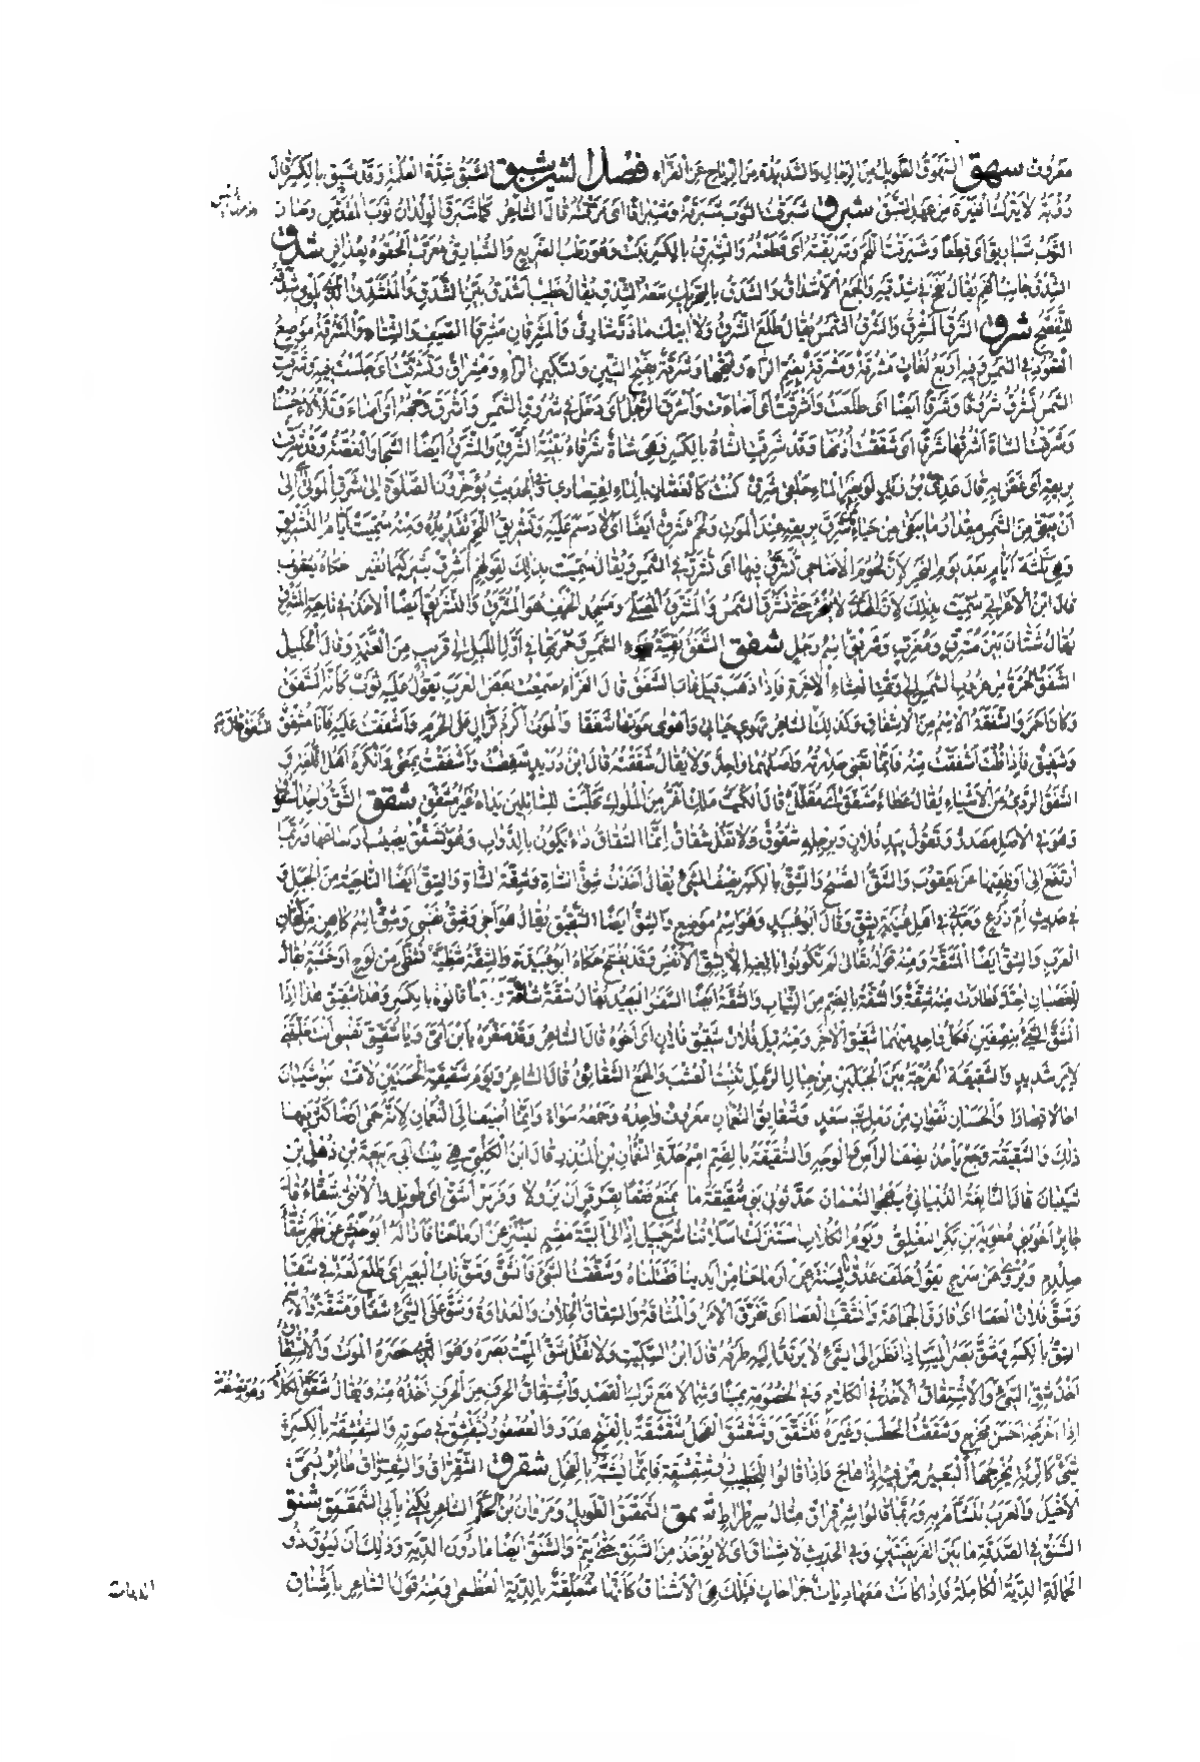 معروف سهق السهوق الطويل من الرجال والشديدة من الرياح عن الفراء فصل الشين شبق الشبق شدة الغلمة وقد شبق بالكسر قال
رؤبة لا يترك الغيرة من عهد الشبق شبرق شبرقت الثوب شبرقة وشبراقا اى مزقته قال الشاعر كما شبرق الولدان ثوب المقدس وصار
الثوب شباريق اى قطعا وشبرقت اللحم وشربقته اى قطعته والشبرق بالكسر نبت وهو رطب الضريع والشبارق معرب شدق
الشدق جانب الفم يقال نفخ فى شدقيه والجمع الاشداق والشدق بالتحريك سعة الشدق يقال خطيب اشدق بين الشدق والمتشدق الذى يلوى شدقه
للتفصح شرق الشرق المشرق والشرق الشمس يقال طلع الشرق ولا اتيك ما ذر شارق والمشرقان مشرقا الصيف والشتاء والمشرقة موضع
القعود فى الشمس وفيه اربع لغات مشرقة ومشرقة بضم الراء وفتحها وشرقة بفتح الشين وتسكين الراء ومشراق وتشرقت اى جلست فيه وشرقت
الشمس تشرق شروقا وشرقا ايضا اى طلعت واشرقت اى اضاءت واشرق الرجل اى دخل فى شروق الشمس واشرق وجهه اى اضاء وتلألأ حسنا
وشرقت الشاة اشرقها شرقا اى شققت اذنها وقد شرقت الشاة بالكسر فهى شاة شرقاء بينة الشرق والشرق ايضا الشجا والغصة وقد شرق
بريقه اى غص به قال عدى بن زيد لو بغير الماء حلقى شرق كنت كالغصان بالماء اعتصارى وفى الحديث يؤخرون الصلوة الى شرق الموتى اى الى
ان يبقى من الشمس مقدار ما يبقى من حياة من شرق بريقه عند الموت ولحم شرق ايضا اى لا دسم عليه وتشريق اللحم تقديده ومنه سميت ايام التشريق
وهى ثلثة ايام بعد يوم النحر لان لحوم الاضاحى تشرق فيها اى تشرر فى الشمس ويقال سميت بذلك لقولهم اشرق ثبير كيما نغير حكاه يعقوب
قال ابن الاعرابى سميت بذلك لان الهدى لا ينحر حتى تشرق الشمس والمشرق المصلى ومسجد الخيف هو المشرق والتشريق ايضا الاخذ فى ناحية المشرق
يقال شتان بين مشرق ومغرب وشريق اسم رجل شفق الشفق بقية ضوء الشمس وحمرتها فى اول الليل الى قريب من العتمة وقال الخليل
الشفق الحمرة من غروب الشمس الى وقت العشاء الاخرة فاذا ذهب قيل غاب الشفق قال الفراء سمعت بعض العرب يقول عليه ثوب كانه الشفق
وكان احمر والشفقة الاسم من الاشفاق وكذلك الشفق قال الشاعر تهوى حياتى واهوى موتها شفقا والموت اكرم نزال على الحرم واشفقت عليه فانا مشفق
وشفيق فاذا قلت اشفقت منه فانما تعنى حذرته واصلهما واحد ولا يقال شفقت قال ابن دريد شفقت واشفقت بمعنى وانكره اهل اللغة و
الشفق الردئ من الاشياء يقال عطاء مشفق اى مقلل قال الكميت ملك اغر من الملوك تحلبت للسائلين يداه غير مشفق شقق الشق واحد الشقوق
وهو فى الاصل مصدر وتقول بيد فلان وبرجله شقوق ولا تقل شقاق انما الشقاق داء يكون بالدواب وهو تشقق يصيب ارساغها وربما
ارتفع الى اوظفتها عن يعقوب والشق الصبح والشق بالكسر نصف الشئ يقال اخذت شق الشاة وشقة الشاة والشق ايضا الناحية من الجبل و
فى حديث ام زرع وجدنى فى اهل غنيمة بشق وقال ابو عبيد وهو اسم موضع والشق ايضا الشقيق يقال هو اخى وشق نفسى وشق اسم كاهن من كهان
العرب والشق ايضا المشقة ومنه قوله تعالى لم تكونوا بالغيه الا بشق الانفس وقد يفتح حكاه ابو عبيدة والشقة شظية تشظى من لوح او خشبة يقال
للغضبان احتد فطارت منه شقة والشقة بالضم من الثياب والشقة ايضا السفر البعيد يقال شقة شاقة وربما قالوه بالكسر وهذا شقيق هذا اذا
انشق الشئ بنصفين فكل واحد منهما شقيق الآخر ومنه قيل فلان شقيق فلان اى اخوه قال الشاعر وقد صغره يا ابن امى ويا شقيق نفسى انت خلفتنى
لامر شديد والشقيقة الفرجة بين الجبلين من جبال الرمل تنبت العشب والجمع الشقائق قال الشاعر ويوم شقيقة الحسنين لاقت بنو شيبان
اجالا قصارا والحسنان نقوان من رمل بنى سعد وشقائق النعمان معروف واحده وجمعه سواء وانما اضيف الى النعمان لانه حمى ارضا كثر فيها
ذلك والشقيقة وجع ياخذ نصف الرأس والوجه والشقيقة بالضم اسم جدة النعمان بن المنذر قال ابن الكلبى هى بنت ابى ربيعة بن ذهل بن
شيبان قال النابغة الذبيانى يهجو النعمان حدثونى بنى الشقيقة ما يمنع فقعا بقرقر ان يزولا وفرس اشق اى طويل والانثى شقاء قال
جابر اخو بنى معوية بن بكر التغلبى ويوم الكلاب استنزلت اسلاتنا شرحبيل اذ الى الية مقسم لينتزعن ارماحنا فازاله ابو حنش عن ظهر شقاء
صلدم ويروى عن سرج يقول حلف عدونا لينتزعن ارماحنا من ايدينا فقتلناه وشققت الشئ فانشق وشق ناب البعير اى طلع لغة فى شقا
وشق فلان العصا اى فارق الجماعة وانشقت العصا اى تفرق الامر والمشاقة والشقاق الخلاف والعداوة وشق على الشئ شقا ومشقة والاسم
الشق بالكسر وشق بصر الميت اذا نظر الى شئ لا يرتد اليه طرفه قال ابن السكيت ولا تقل شق الميت بصره وهو الذى حضره الموت والاشتقاق
اخذ شق الشئ والاشتقاق الاخذ فى الكلام وفى الخصومة يمينا وشمالا مع ترك القصد واشتقاق الحرف من الحرف اخذه منه ويقال شقق الكلام
اذا اخرجه احسن مخرج وشققت الحطب وغيره فتشقق وشقشق الفحل شقشقة بالفتح هدر والعصفور يشقشق فى صوته والشقشقة بالكسر
شئ كالرئة يخرجها البعير من فيه اذا هاج فاذا قالوا للخطيب ذو شقشقة فانما يشبه بالفحل شقرق الشقراق والشقراق طائر يسمى
الاخيل والعرب تتشأم به وربما قالوا شرقراق مثال سرطراط شمق الشمقمق الطويل ومروان بن محمد الشاعر يكنى بابى الشمقمق شنق
الشنق فى الصدقة ما بين الفريضتين وفى الحديث لا شناق اى لا يؤخذ من الشنق حتى يتم والشنق ايضا ما دون الدية وذلك ان يسوق ذو
الحمالة الدية الكاملة فاذا كانت معها ديات جراحات فتلك هى الاشناق كانها متعلقة بالدية العظمى ومنه قول الشاعر باشناق
الديات